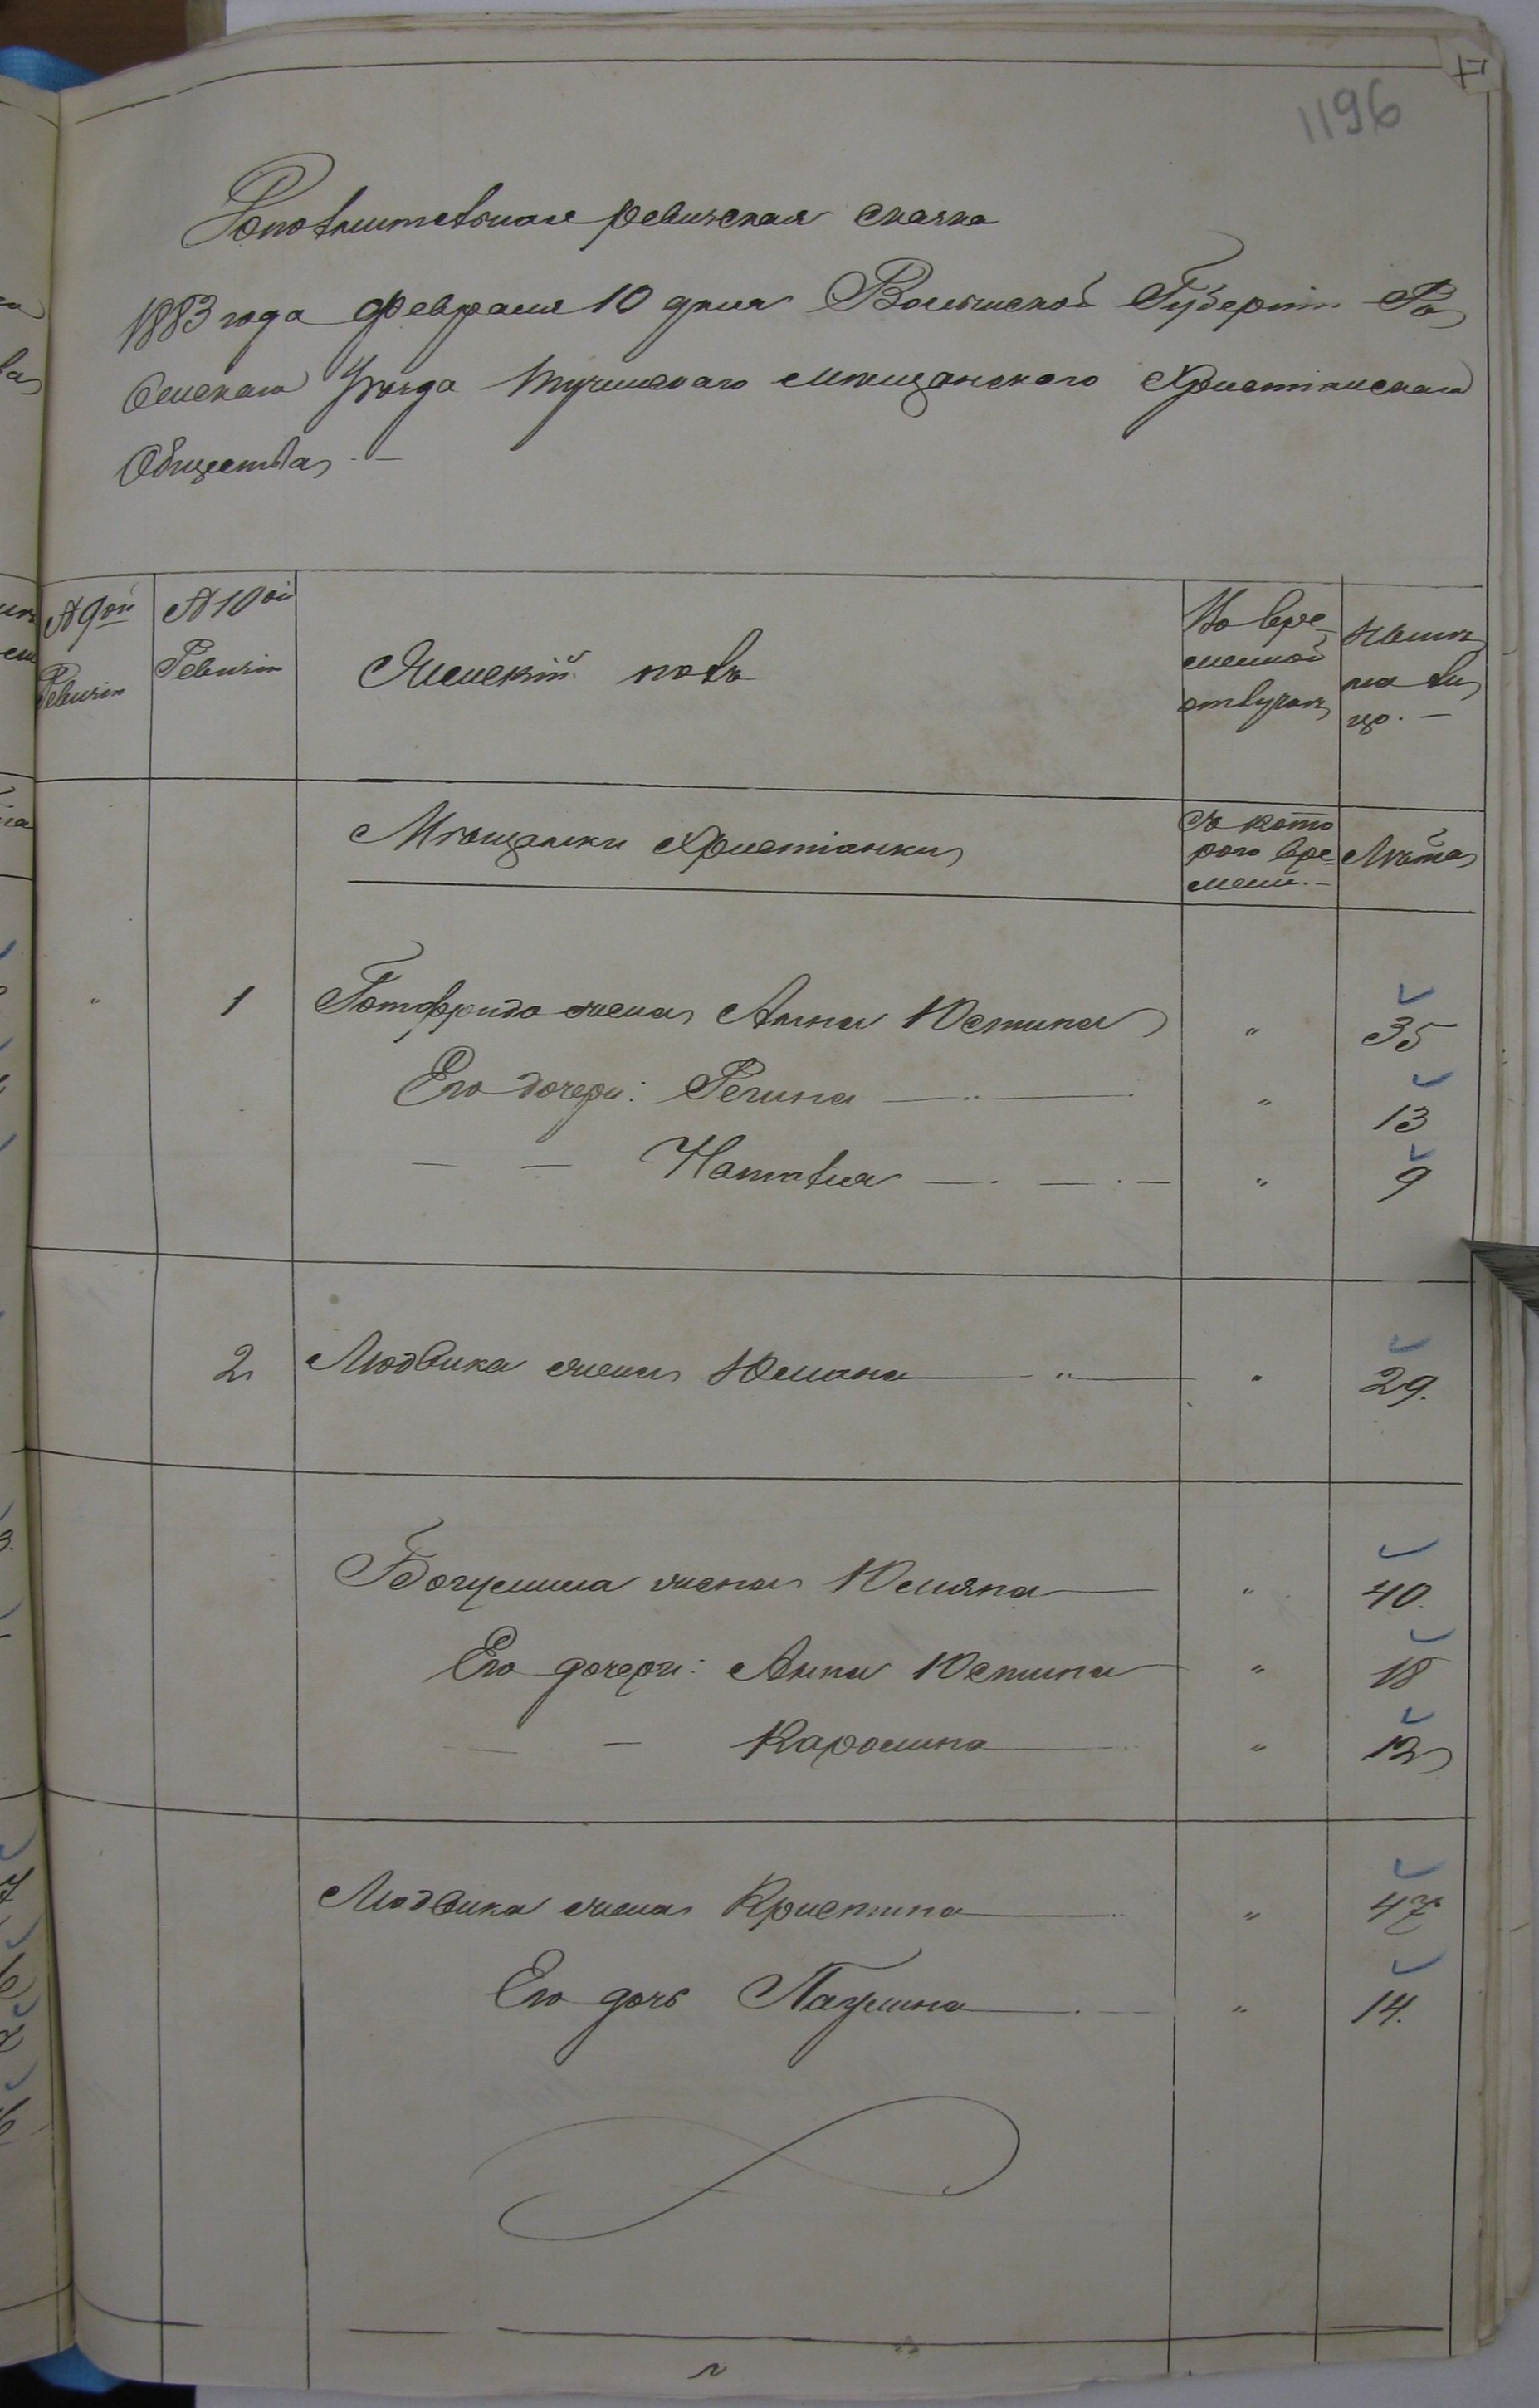 1196
Дополнительная ревизская сказка
1883 года Февраля 10 дня Волынской Губерніи Ро
венскаго Уѣзда Тучинскаго мѣщанскаго Христіанскаго
Общества
№ 9ой Ревизіи
№ 10ой Ревизіи
Женскій полъ
Во вре-
менной
отлучкѣ
Нынѣ
на ли
цо. —
Мѣщанки Христіанки
Съ кото
рого вре-
мени. —
Лѣта
" 1 Готфрида жена Анна Юстина " 35
Его дочери: Регина — " — " 13
— — Наталія — . — . — " 9
2 Людвика жена Юлiана — " — " 29.
Богумила жена Юлiяна — " 40.
Его дочери: Анна Юстина — " 18
— — Каролина — " 12
Людвика жена Кристина — " 47
Его дочь Паулина — " 14.